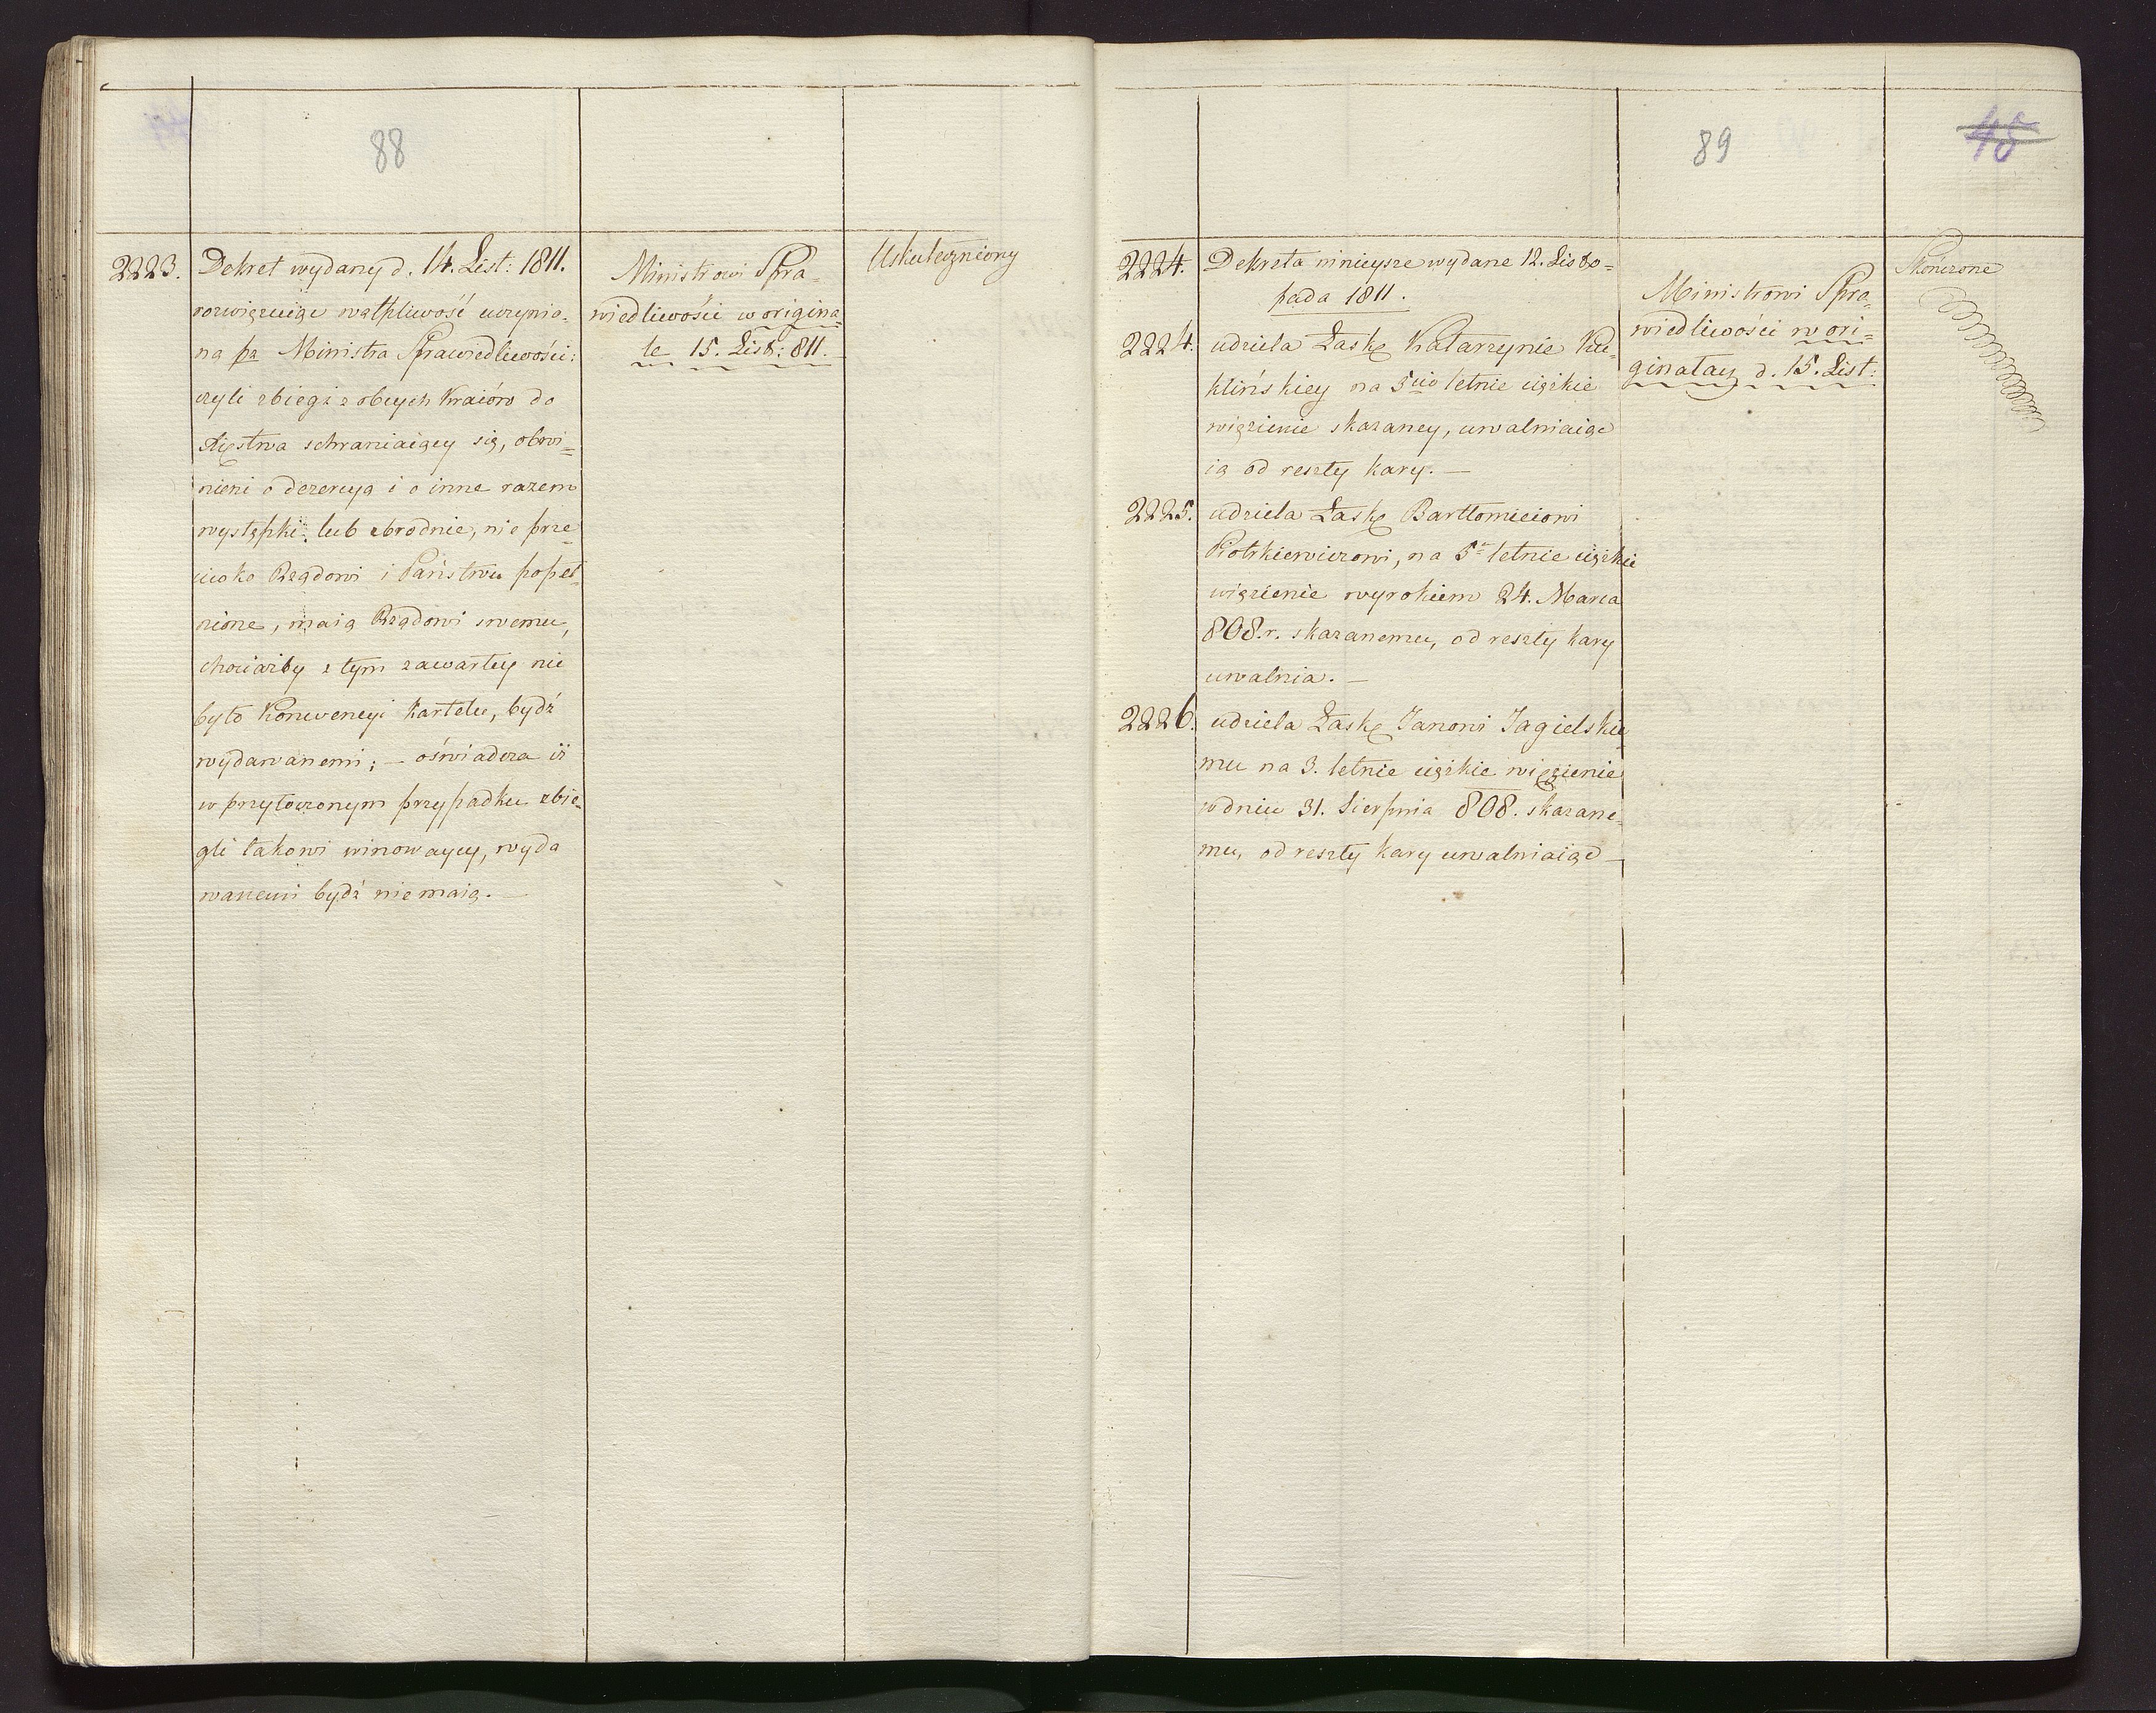 88
2223.
Dekret wydany d. 14. List: 1811.
rozwięzuiąc wątpliwość uczynio-
ną pa Ministra Sprawiedliwości:
czyli zbiegi z obcych Kraiów do
Xięstwa schraniaiący się, obwi=
nieni o dezercyą i o inne razem
występki lub zbrodnie, nie prze
ciwko Rządowi i Państwu popeł-
nione, maią Rządowi swemu,
chociażby z tym zawartey nie
było Konwencyi kartelu, bydź
wydawanemi; – oświadcza iż
w przytoczonym przypadku zbie-
gli takowi winowaycy, wyda
wanemi bydź nie maią. –
Ministrowi Spra-
wiedliwości w origina
le 15. List: 811.
Uskuteczniony
89
45
2224.
Dekreta nineysze wydane 12. Listo=
pada 1811.
2224.
udziela Łaskę Katarzynie Ku-
klińskiey na 5cio letnie ciężkie
więzienie skazaney, uwalniaiąc
ią od reszty kary. –
2225.
udziela Łaskę Bartłomieiowi
Piotrkiewiczowi, na 5 letnie ciężkie
więzienie wyrokiem 24. Marca
808. r. skazanemu, od reszty kary
uwalnia. –
2226.
udziela Łaskę Janowi Jagielskie
mu na 3. letnie ciężkie więzienie
w dniu 31. Sierpnia 808. skazane-
mu, od reszty kary uwalniaiąc –
Ministrowi Spra-
wiedliwości w ori-
ginałay d. 15. List:
Skończone